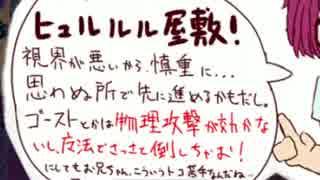 ヒュルルル屋敷!
視界が悪いから、慎重に...
思わぬ所で先に進めるかもだし。
ゴーストとかは物理攻撃が効かな
いし、反法でさっさと倒しちゃお!
にしてもお兄ちゃん、こういうトコ苦手なんだね…